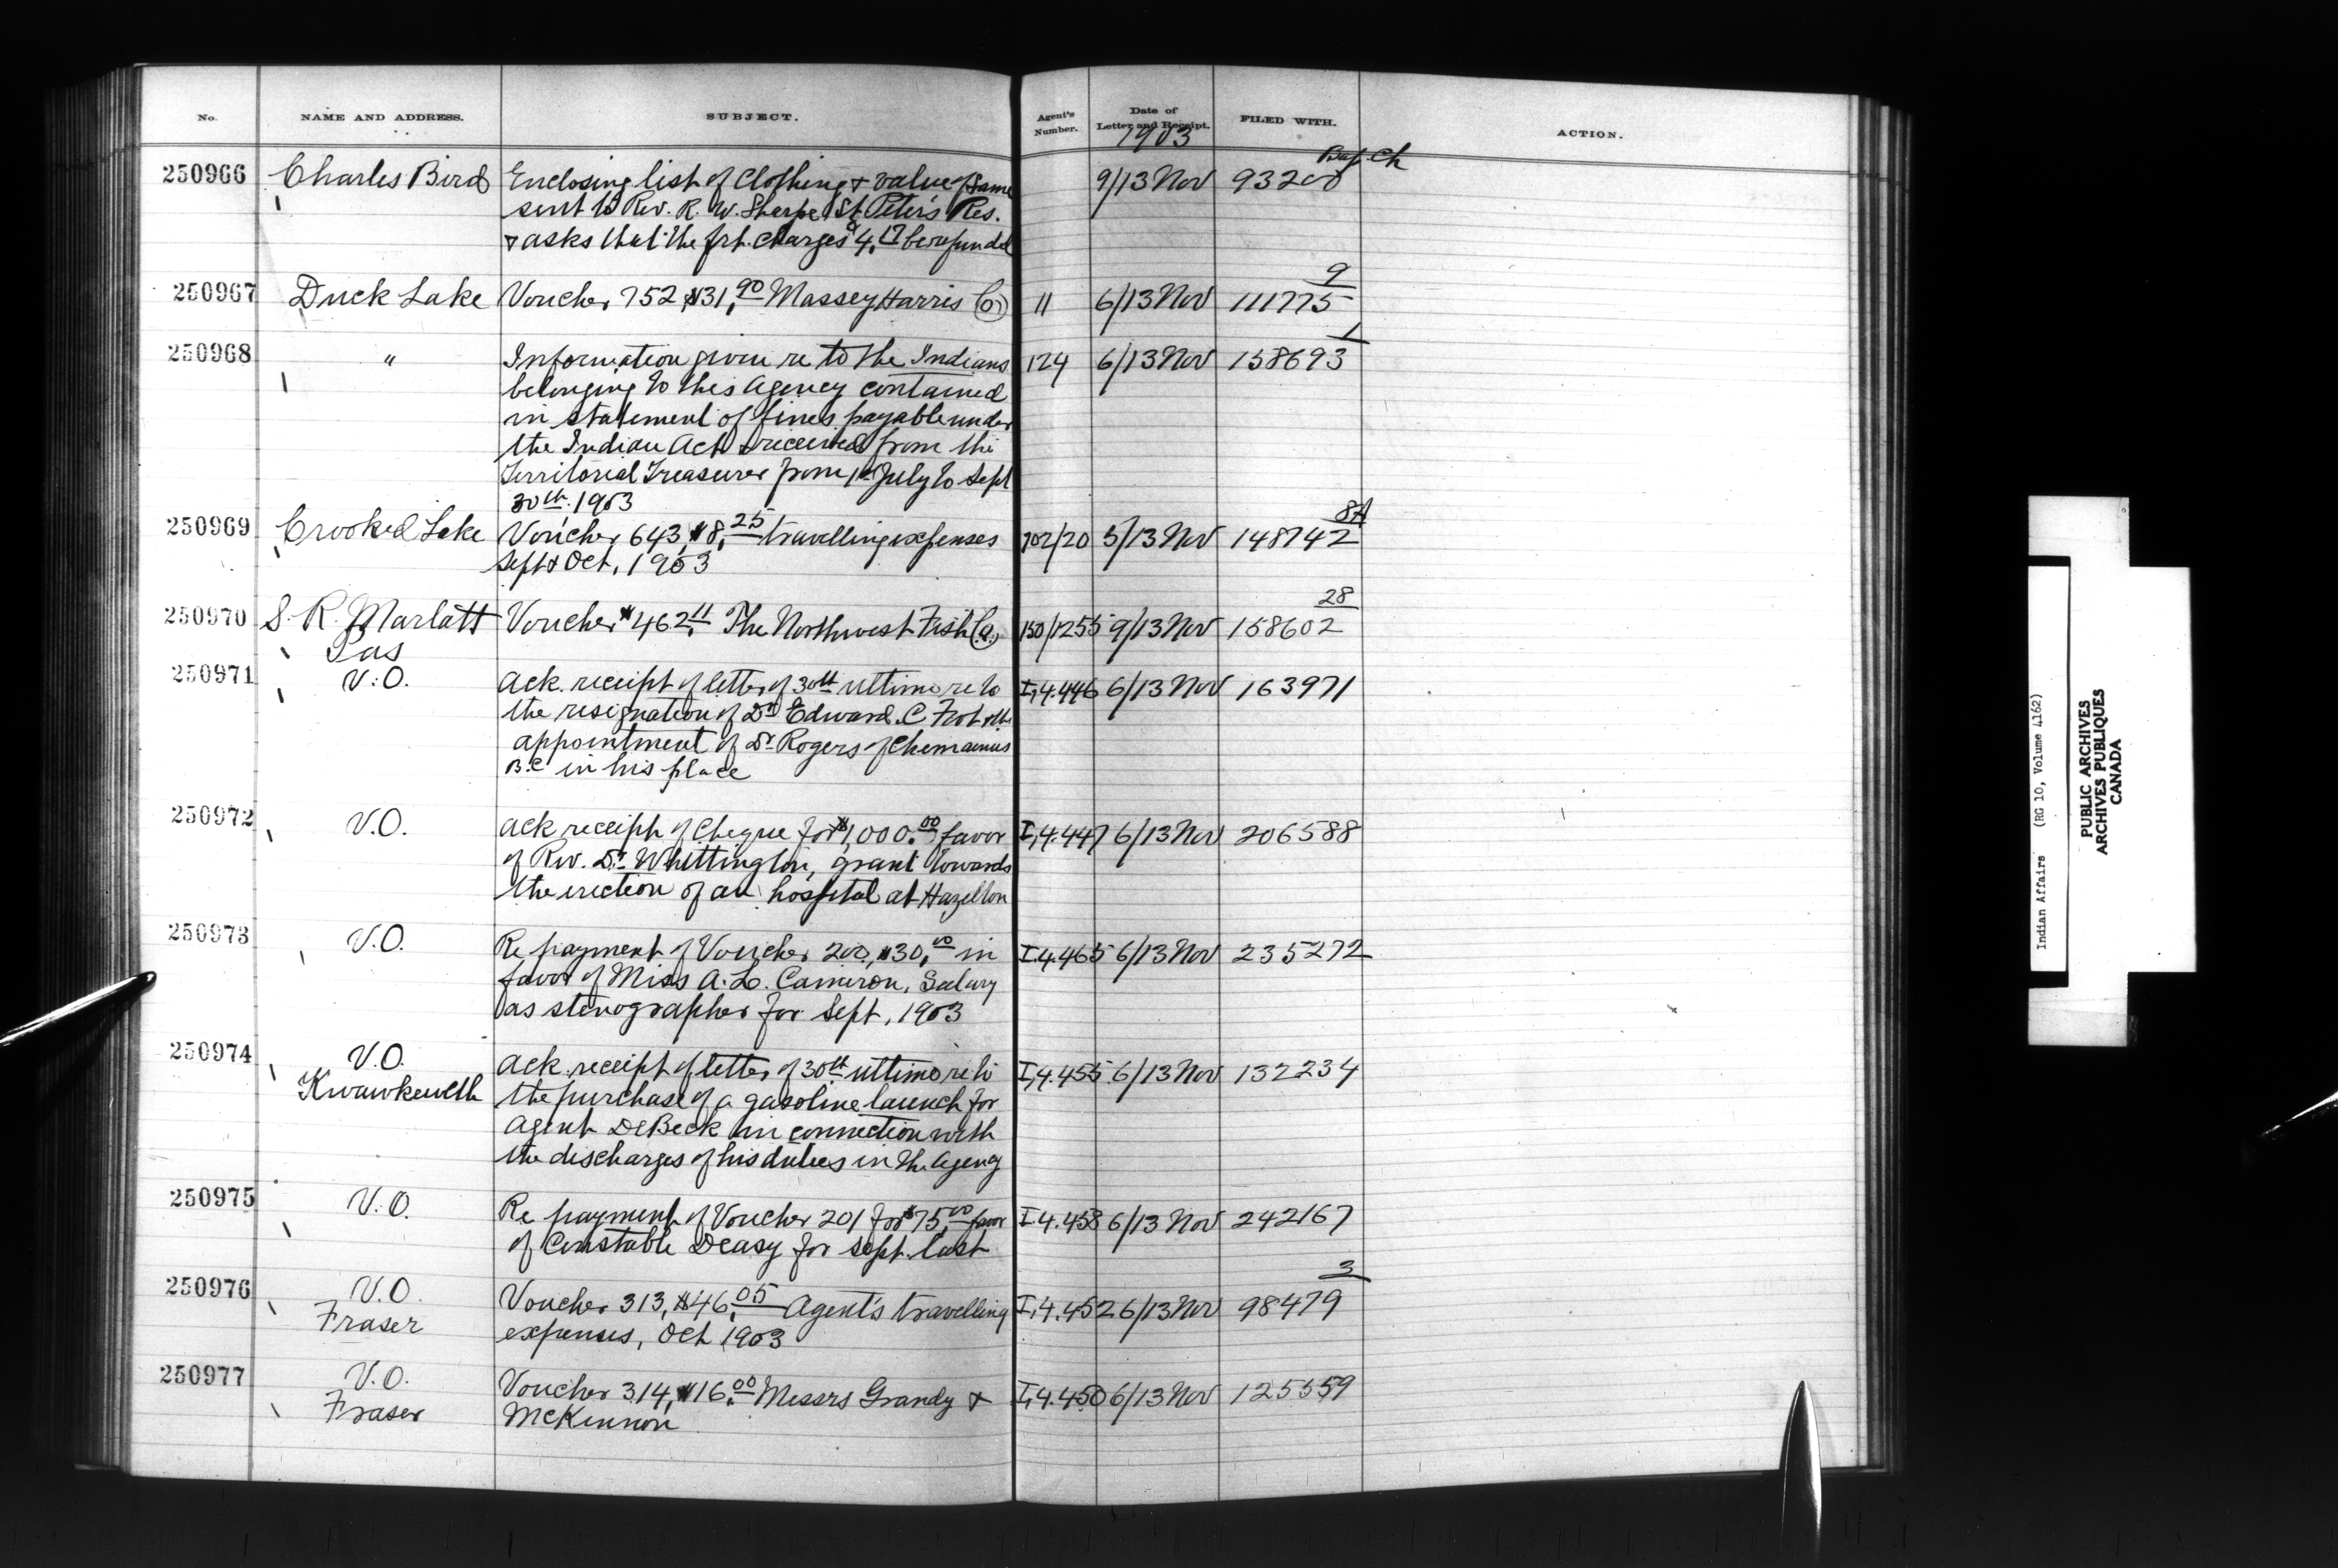 No. NAME AND ADDRESS. SUBJECT. Agent's Number. Date of Letter and Receipt. FILED WITH. ACTION.
1903
250966 Charles Bird Enclosing list of Clothing & value of same 9/13 Nov 93200
sent to Rev. R. W. Sharpe St. Peter's Res.
& asks that the frt. charges $4.17 be refunded
9
250967 Duck Lake Voucher 752 $31.90 Massey Harris Co 11 6/13 Nov 111775
1
250968 " Information given re to the Indians 124 6/13 Nov 158693
belonging to this Agency contained
in statement of fines payable under
the Indian Act & received from the
Territorial Treasurer from 1st July to Sept
30th. 1903
8A
250969 Crooked Lake Voucher 643, $8.25 travelling expenses 702/20 5/13 Nov 148742
Sept & Oct, 1903
28
250970 S. R. Marlatt Voucher $462.11 The Northwest Fish Co. 150/1255 9/13 Nov 158602
Pas
250971 V.O. Ack. receipt of letter of 30th ultimo re to I,4.446 6/13 Nov 163971
the resignation of Dr Edward. C
appointment of Dr Rogers of Chemainus
B.C in his place
250972 V.O. Ack receipt of Cheque for $1,000.00 favor I,4.447 6/13 Nov 206588
of Rev. Dr. Whittington, grant towards
the erection of an hospital at Hazelton
250973 V.O. Re payment of Voucher 200, $30.00 in I.4.465 6/13 Nov 235272
favor of Miss A. L. Cameron, Salary
as stenographer for Sept, 1903
250974 V.O. Ack. receipt of letter of 30th ultimo re to I,4.455 6/13 Nov 132234
Kwawkewlth the purchase of a gasoline launch for
Agent DeBeck in connection with
the discharges of his duties in the Agency
250975 V.O. Re payment of Voucher 201 for $75.00 favor I.4.458 6/13 Nov 242167
of Constable Deasy for Sept. last
3
250976 V.O. Voucher 313, $46.05 Agent's travelling I,4.452 6/13 Nov 98479
Fraser expenses, Oct 1903
250977 V.O. Voucher 314, $16.00 Messrs Grandy & I,4.450 6/13 Nov 125559
Fraser McKinnon
Indian Affairs (RG 10, Volume 4162)
PUBLIC ARCHIVES
ARCHIVES PUBLIQUES
CANADA